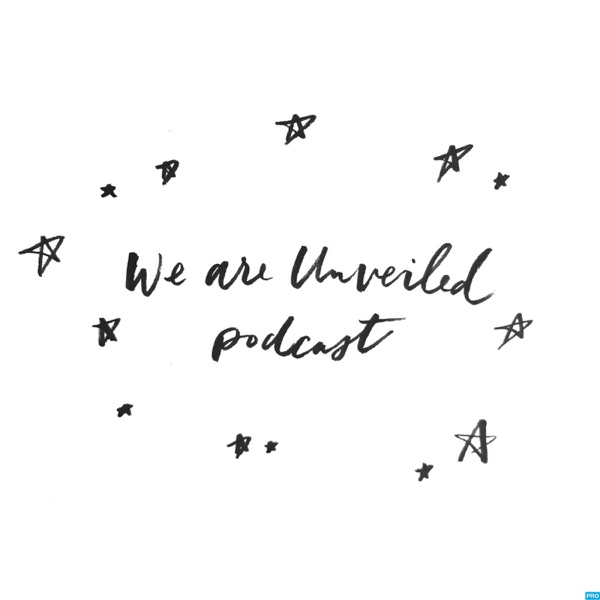 We are Unveiled
podcast
PRO